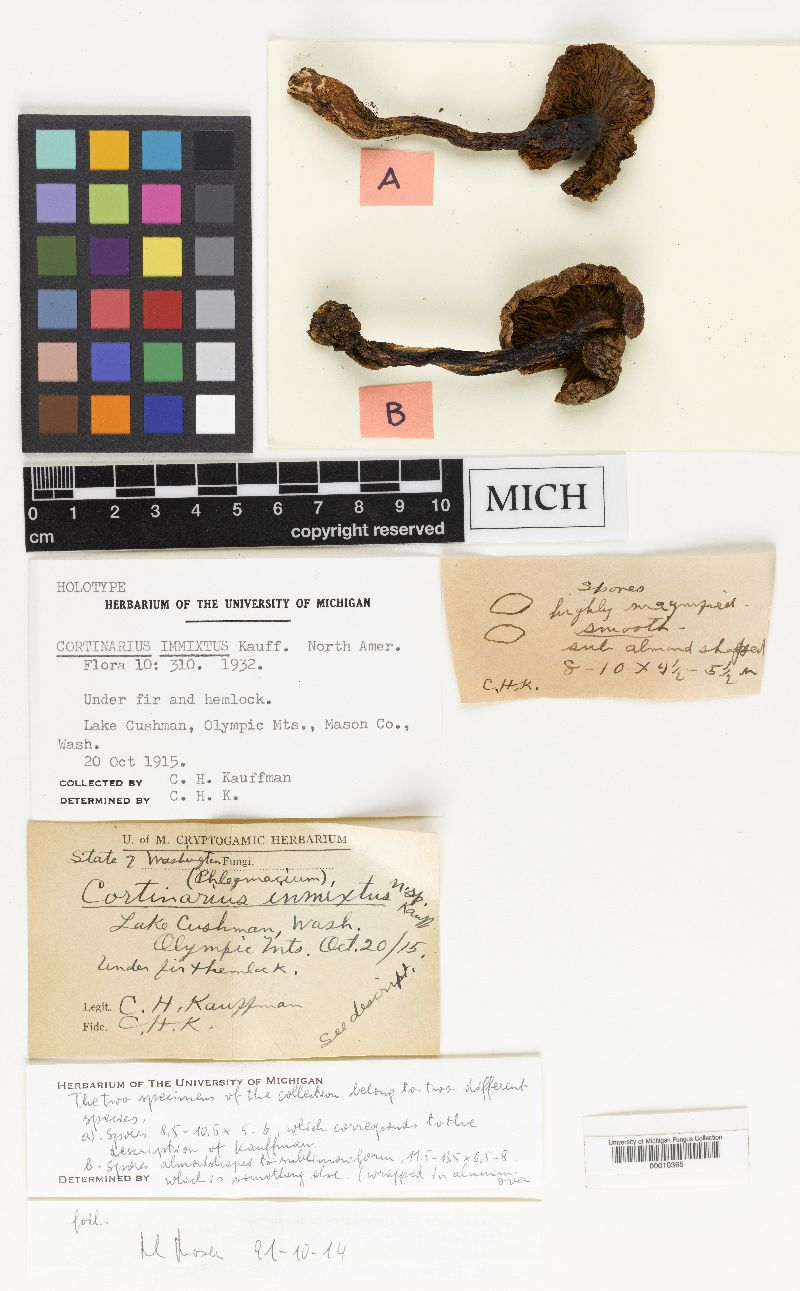 A
B
0 1 2 3 4 5 6 7 8 9 10
cm
copyright reserved
MICH
HOLOTYPE
HERBARIUM OF THE UNIVERSITY OF MICHIGAN
CORTINARIUS IMMIXTUS Kauff. North Amer.
Flora 10: 310. 1932.
Under fir and hemlock.
Lake Cushman, Olympic Mts., Mason Co.,
Wash.
20 Oct 1915.
COLLECTED BY C. H. Kauffman
DETERMINED BY C. H. K.
Spores
highly magnified.
smooth -
sub almond shaped
8 - 10 x 4½ - 5½ m
C.H.K.
U. of M. CRYPTOGAMIC HERBARIUM
State of Washington Fungi.
(Phlegmacium),
Cortinarius inmixtus n.sp.
Kauff.
Lake Cushman, Wash.
Olympic Mts. Oct. 20/15.
Under fir & hemlock.
Legit. C. H. Kauffman
Fide. C.H.K.
See descript.
HERBARIUM OF THE UNIVERSITY OF MICHIGAN
The two specimens of the collection belong to two different
species.
a). Spores 8,5-10,5 x 5-6, which corresponds to the
description of Kauffman
b. Spores almondshaped to sublimoniform, 11.5-13,5 x 6,5-8
DETERMINED BY which is something else. (wrapped in aluminum
over
foil.
M Moser 91-10-14
University of Michigan Fungus Collection
00010365